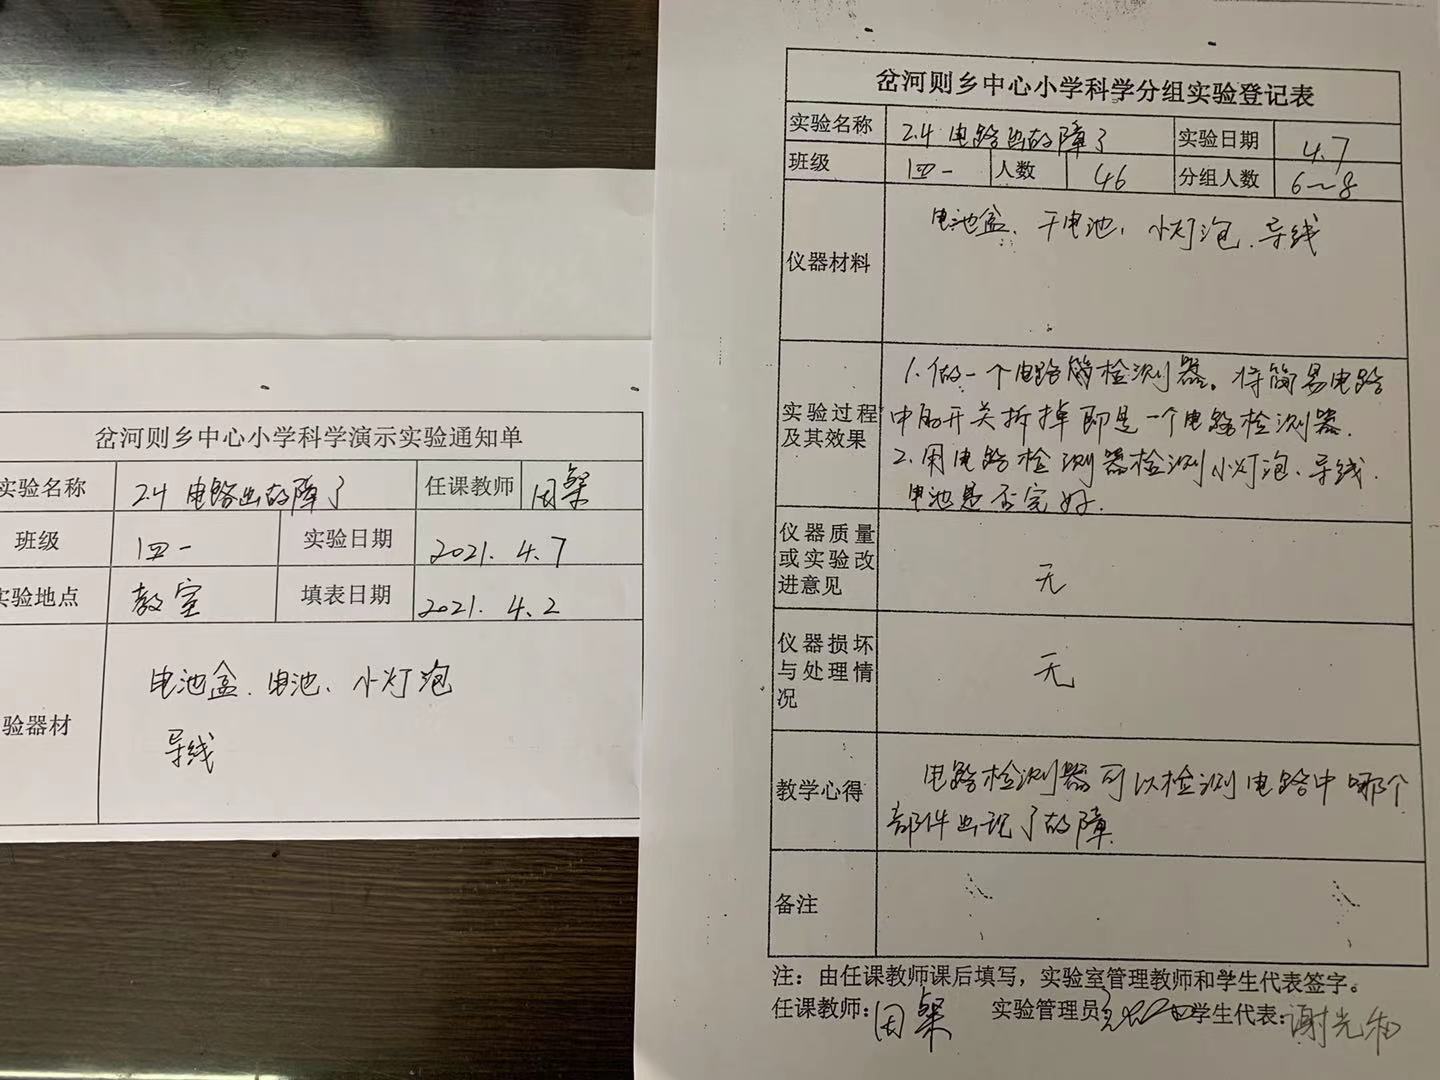 岔河则乡中心小学科学演示实验通知单
实验名称 2.4 电路出故障了 任课教师 周粲
班级 四一 实验日期 2021.4.7
实验地点 教室 填表日期 2021.4.2
验器材 电池盒、电池、小灯泡
导线
岔河则乡中心小学科学分组实验登记表
实验名称 2.4 电路出故障了 实验日期 4.7
班级 四一 人数 46 分组人数 6～8
仪器材料 电池盒、干电池、小灯泡、导线
实验过程及其效果
1.做一个电路简检测器。将简易电路
中的开关拆掉即是一个电路检测器.
2.用电路检测器检测小灯泡、导线.
电池是否完好.
仪器质量
或实验改
进意见
无
仪器损坏
与处理情
况
无
教学心得
电路检测器可以检测电路中哪个
部件出现了故障.
备注
注：由任课教师课后填写，实验室管理教师和学生代表签字。
任课教师：周粲 实验管理员 学生代表：谢光